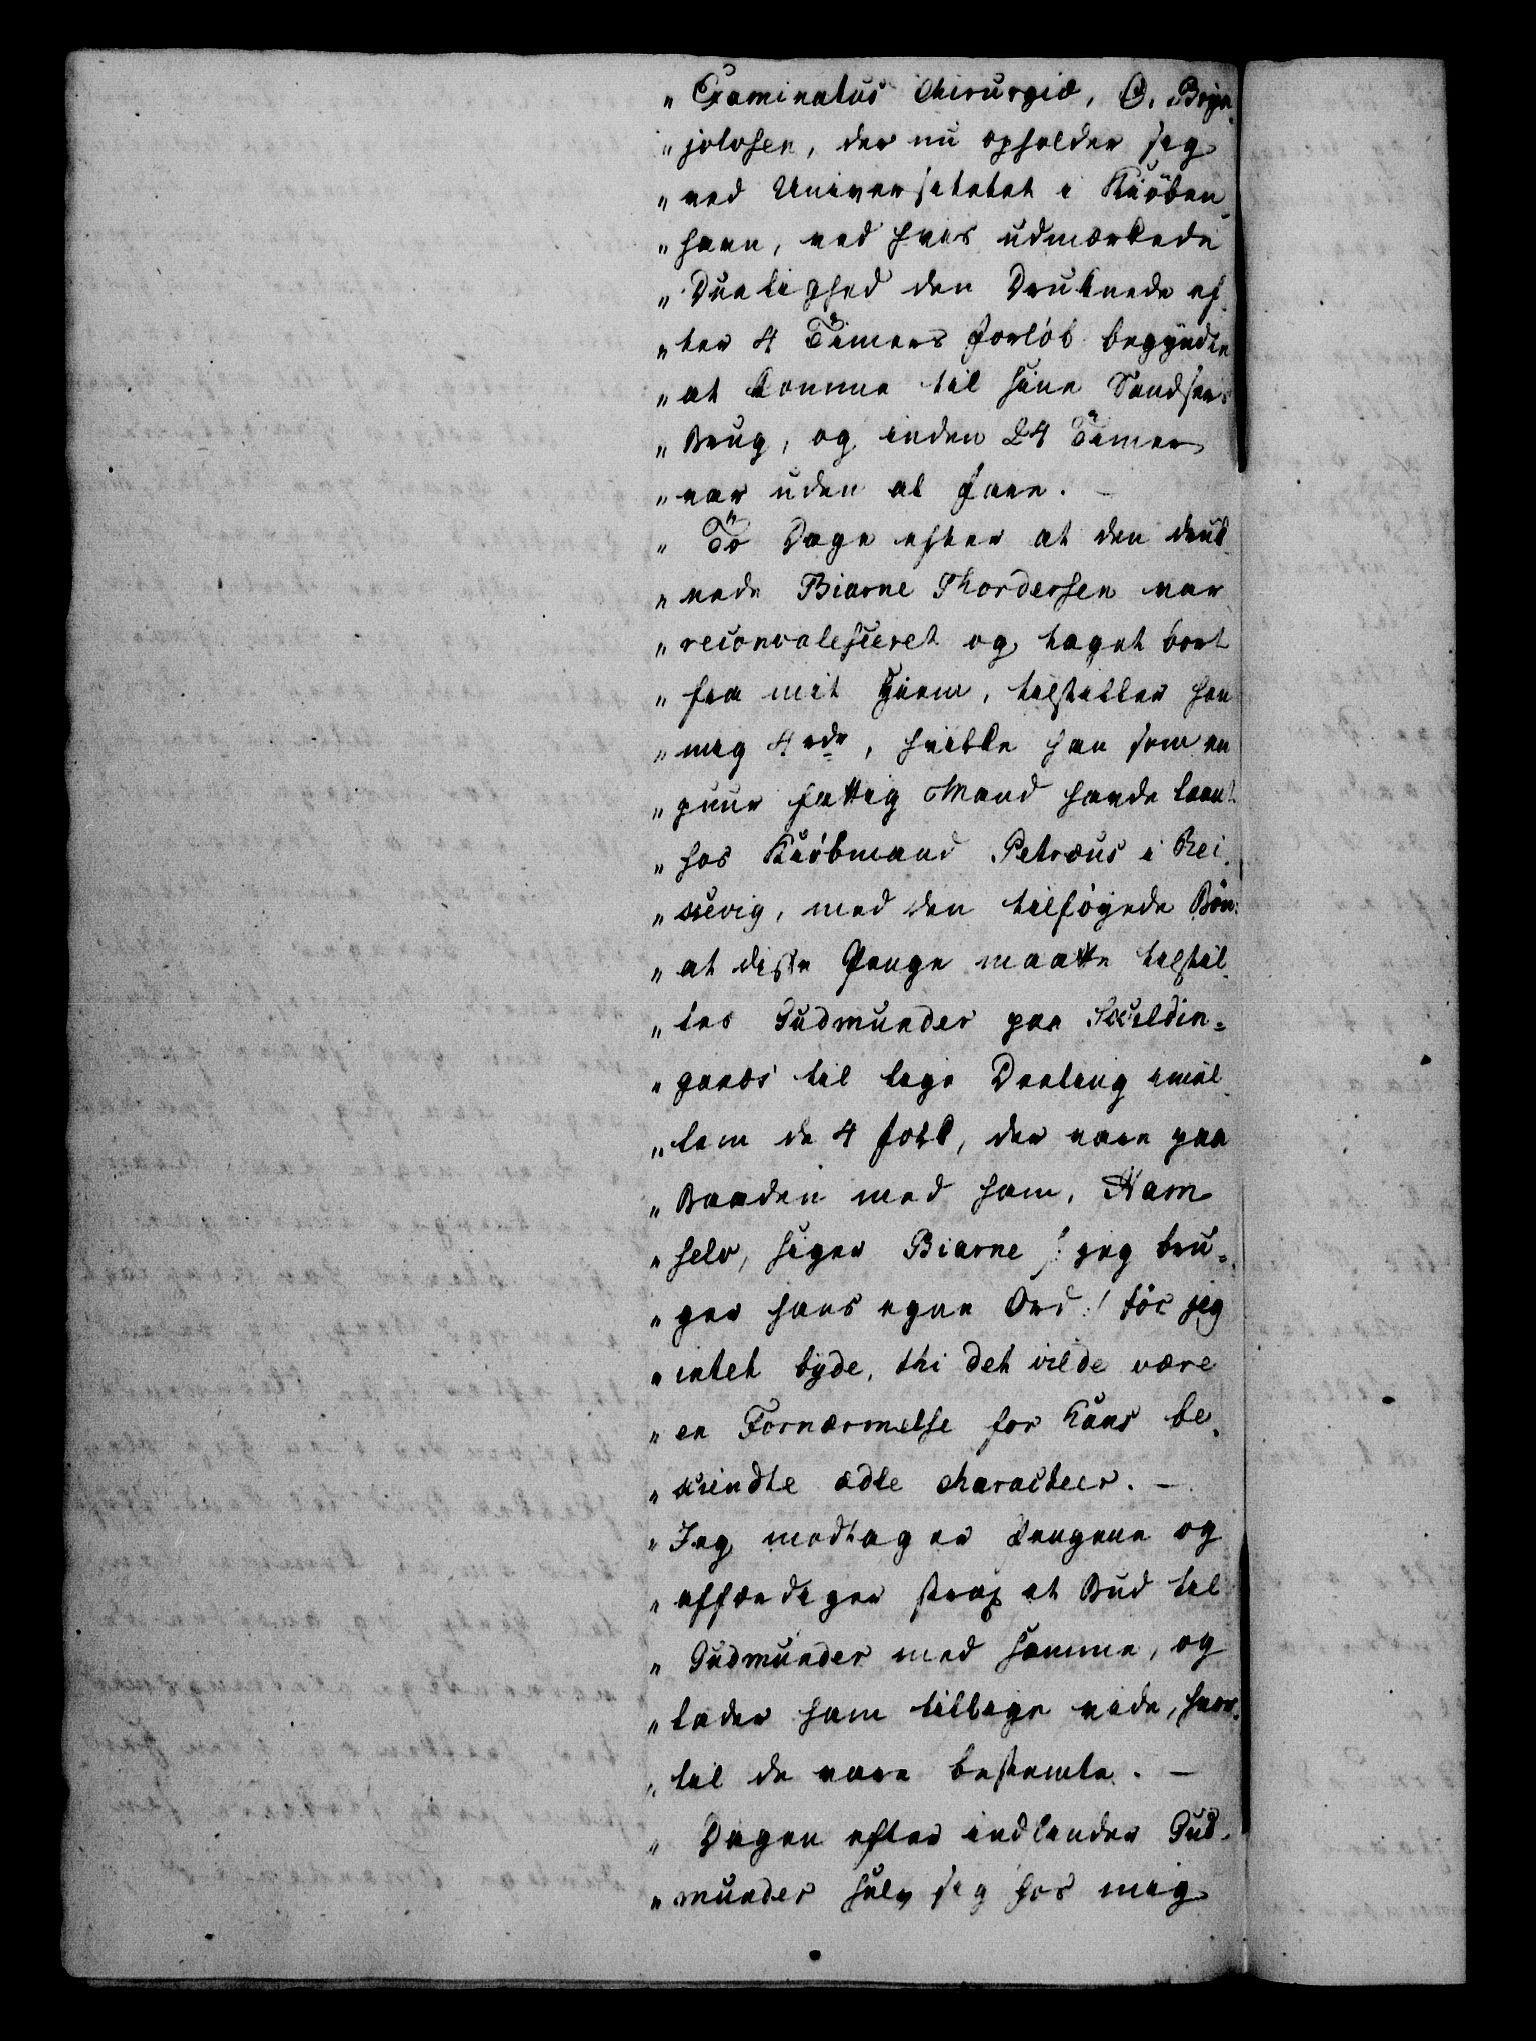 „ Examinatus Chirurgiæ, O. Bryn„
„ jolvsen, der nu opholder sig
„ ved Universitetet i Kiöben„
„ havn, ved hvis udmærkede
„ Duelighed den Druknede ef„
„ ter 4 Timers Forløb begyndte
„ at komme til sine Sandsers
„ Brug, og inden 24 Timer
„ var uden al Fare. –
„ To Dage efter at den druk„
„ nede Biarne Thordersen var
„ reconvalesceret og taget bort
„ fra mit Hiem, tilstiller han
„ mig 4 rdr, hvilke han som en
„ puur fattig Mand havde laant
„ hos Kiöbmand Petræus i Rei„
„ kevig, med den tilföyede Bön:
„ at disse Penge maatte tilstil„
„ les Gudmunder paa Skildin„
„ genæs til lige Deeling imel„
„ lem de 4 Folk, der vare paa
„ Baaden med ham. Ham
„ selv, siger Biarne /: jeg bru„
„ ger hans egne Ord :/ tör jeg
„ intet byde, thi det vilde være
„ en Fornærmelse for hans be„
„ kiendte ædle characteer. –
„ Jeg modtager Pengene og
„ affærdiger strax et Bud til
„ Gudmunder med samme, og
„ lader ham tillige vide, hvor„
„ til de vare bestemte. –
„ Dagen efter indfinder Gud„
„ munder selv sig hos mig